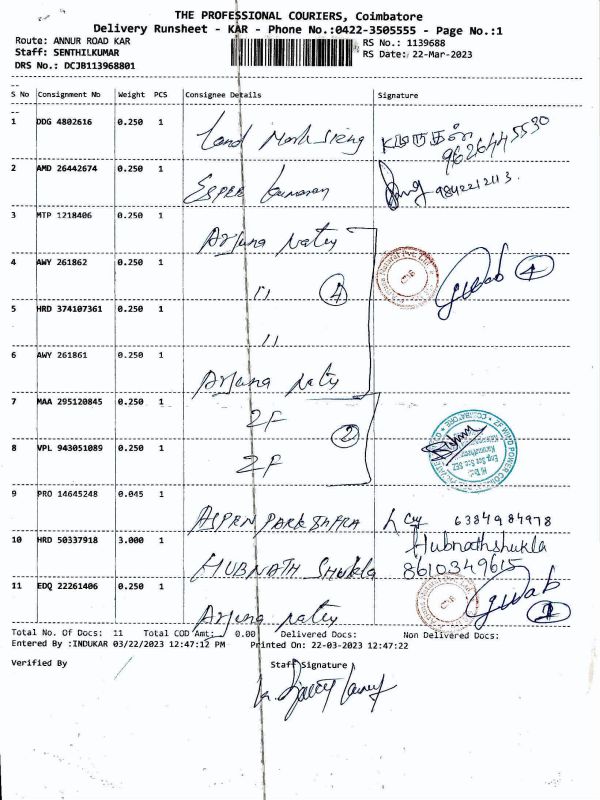 THE PROFESSIONAL COURIERS, Coimbatore
Delivery Runsheet - KAR - Phone No.:0422-3505555 - Page No.:1
Route: ANNUR ROAD KAR
RS No.: 1139688
Staff: SENTHILKUMAR
RS Date: 22-Mar-2023
DRS No.: DCJB113968801
S No Consignment No Weight PCS Consignee Details Signature
1 DDG 4802616 0.250 1 Land Mark
9626445530
2 AMD 26442674 0.250 1
9842212113.
3 MTP 1218406 0.250 1 Arjuna
4 AWY 261862 0.250 1 " 4 4
5 HRD 374107361 0.250 1 "
6 AWY 261861 0.250 1 Arjuna
7 MAA 295120845 0.250 1 ZF
2
8 VPL 943051089 0.250 1 ZF
9 PRO 14645248 0.045 1 ASPEN PARK INFRA 6384984978
10 HRD 50337918 3.000 1 HUBNATH Shukla Hubnathshukla
8610349615
11 EDQ 22261406 0.250 1 Arjuna
Total No. Of Docs: 11 Total COD Amt: 0.00 Delivered Docs: Non Delivered Docs:
Entered By :INDUKAR 03/22/2023 12:47:12 PM Printed On: 22-03-2023 12:47:22
Verified By Staff Signature